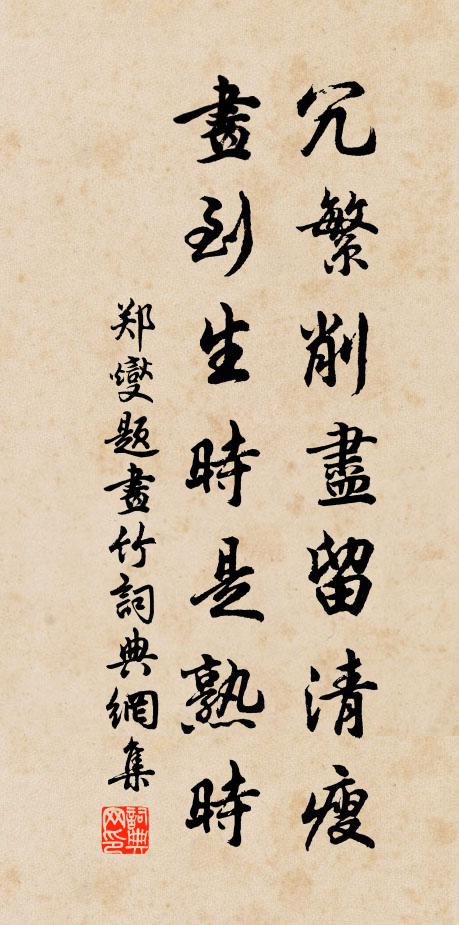 冗繁削盡留清瘦
畫到生時是熟時
郑燮題畫竹詞典網集
詞典網印